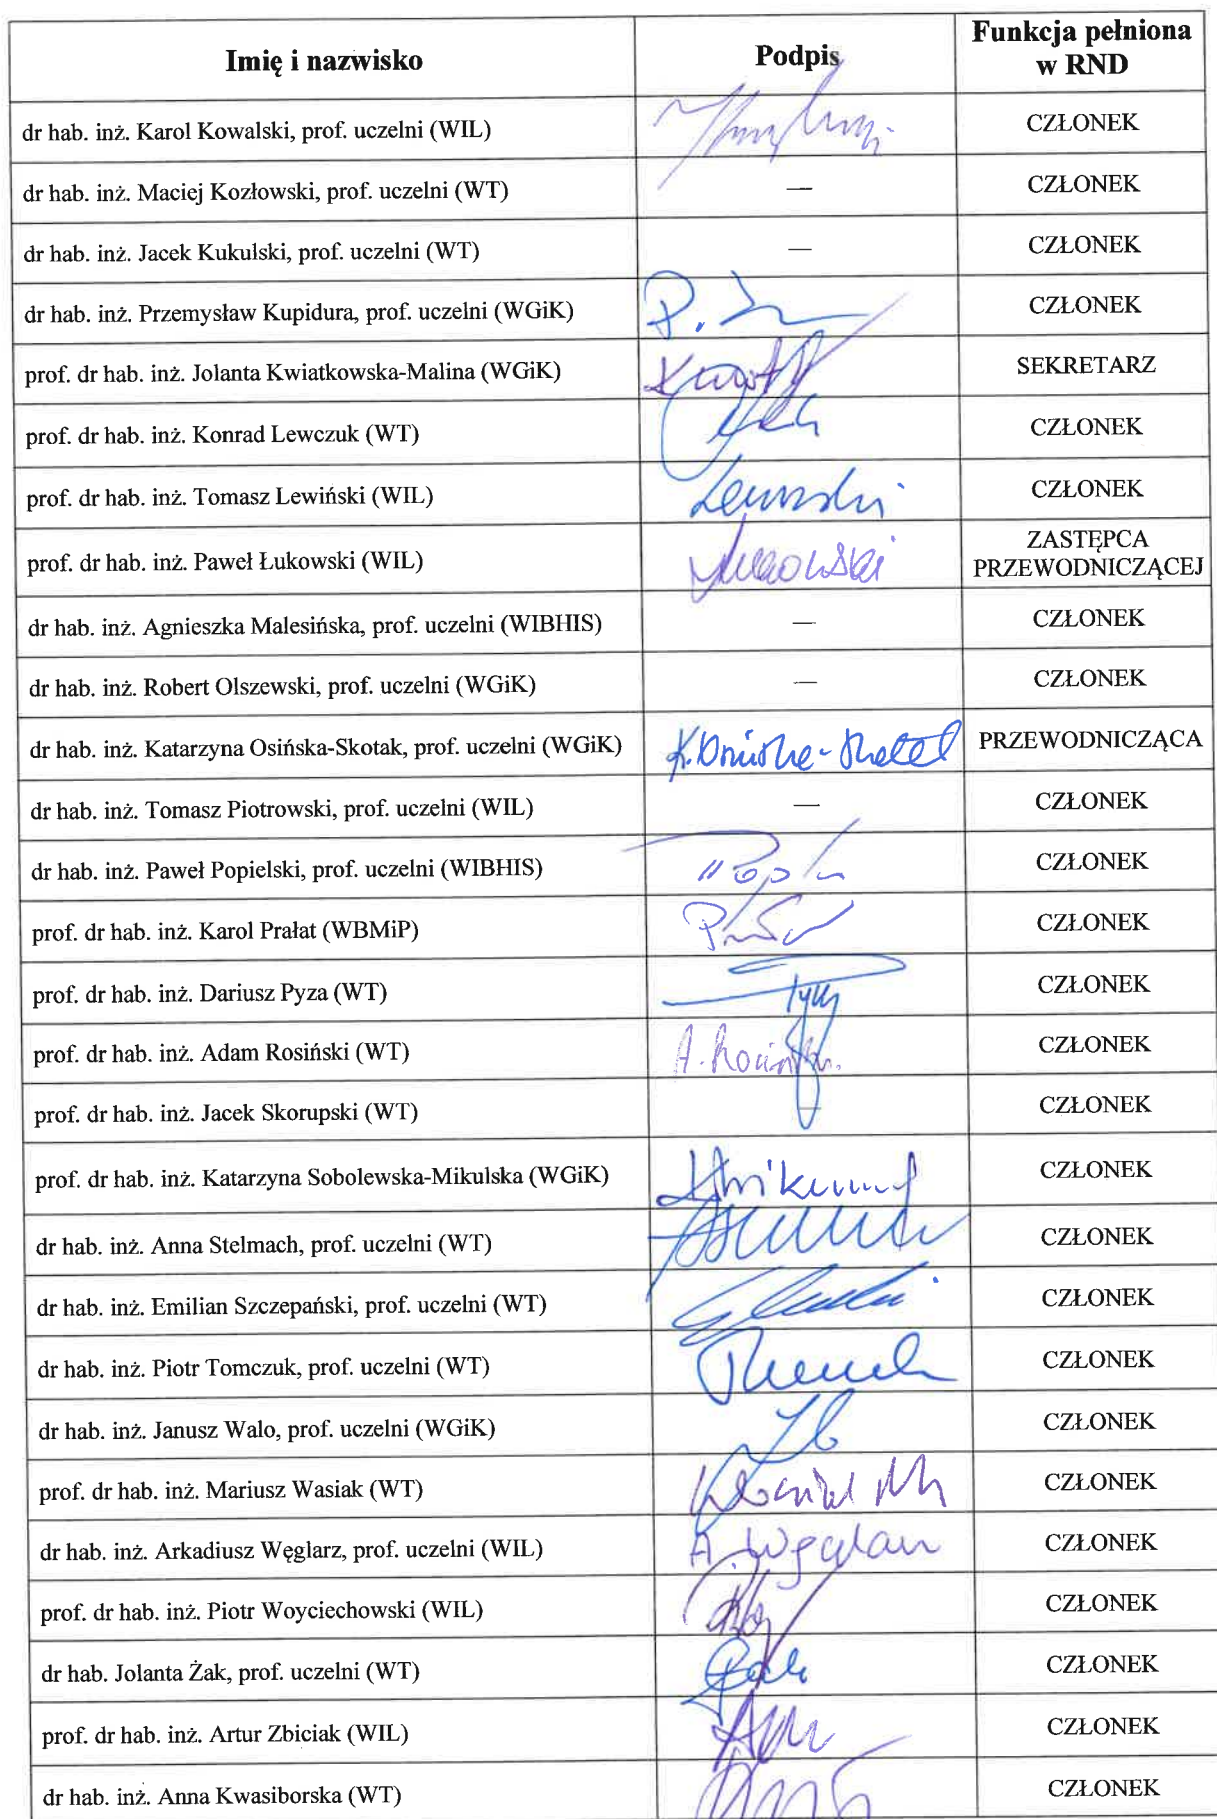 Imię i nazwisko Podpis Funkcja pełniona
w RND
dr hab. inż. Karol Kowalski, prof. uczelni (WIL) CZŁONEK
dr hab. inż. Maciej Kozłowski, prof. uczelni (WT) — CZŁONEK
dr hab. inż. Jacek Kukulski, prof. uczelni (WT) — CZŁONEK
dr hab. inż. Przemysław Kupidura, prof. uczelni (WGiK) CZŁONEK
prof. dr hab. inż. Jolanta Kwiatkowska-Malina (WGiK) SEKRETARZ
prof. dr hab. inż. Konrad Lewczuk (WT) CZŁONEK
prof. dr hab. inż. Tomasz Lewiński (WIL) CZŁONEK
prof. dr hab. inż. Paweł Łukowski (WIL) ZASTĘPCA
PRZEWODNICZĄCEJ
dr hab. inż. Agnieszka Malesińska, prof. uczelni (WIBHIS) — CZŁONEK
dr hab. inż. Robert Olszewski, prof. uczelni (WGiK) — CZŁONEK
dr hab. inż. Katarzyna Osińska-Skotak, prof. uczelni (WGiK) PRZEWODNICZĄCA
dr hab. inż. Tomasz Piotrowski, prof. uczelni (WIL) — CZŁONEK
dr hab. inż. Paweł Popielski, prof. uczelni (WIBHIS) CZŁONEK
prof. dr hab. inż. Karol Prałat (WBMiP) CZŁONEK
prof. dr hab. inż. Dariusz Pyza (WT) CZŁONEK
prof. dr hab. inż. Adam Rosiński (WT) CZŁONEK
prof. dr hab. inż. Jacek Skorupski (WT) — CZŁONEK
prof. dr hab. inż. Katarzyna Sobolewska-Mikulska (WGiK) CZŁONEK
dr hab. inż. Anna Stelmach, prof. uczelni (WT) CZŁONEK
dr hab. inż. Emilian Szczepański, prof. uczelni (WT) CZŁONEK
dr hab. inż. Piotr Tomczuk, prof. uczelni (WT) CZŁONEK
dr hab. inż. Janusz Walo, prof. uczelni (WGiK) CZŁONEK
prof. dr hab. inż. Mariusz Wasiak (WT) CZŁONEK
dr hab. inż. Arkadiusz Węglarz, prof. uczelni (WIL) CZŁONEK
prof. dr hab. inż. Piotr Woyciechowski (WIL) CZŁONEK
dr hab. Jolanta Żak, prof. uczelni (WT) CZŁONEK
prof. dr hab. inż. Artur Zbiciak (WIL) CZŁONEK
dr hab. inż. Anna Kwasiborska (WT) CZŁONEK